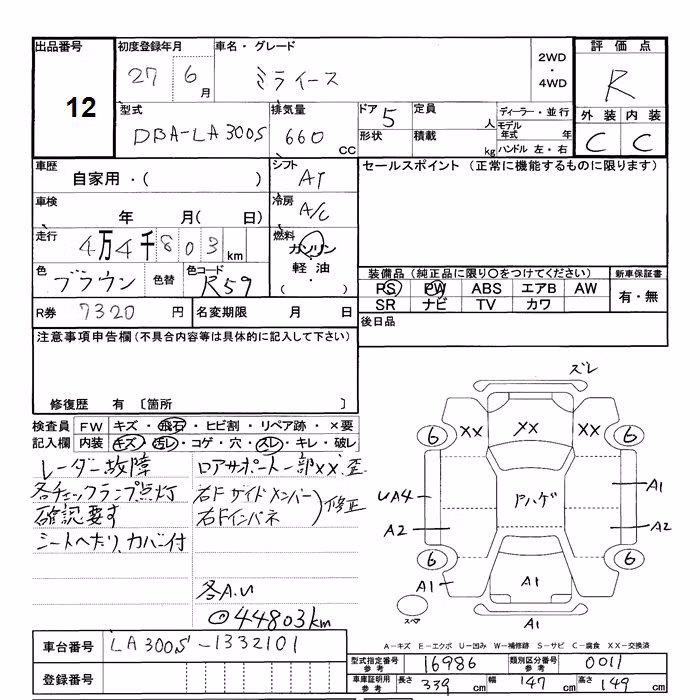 出品番号
12
初度登録年月
27 6月
車名・グレード
ミライース
2WD
・
4WD
評価点
R
型式
DBA-LA300S
排気量
660 CC
ドア 5
形状
定員 人
積載 kg
ディーラー・並行
モデル年式 年
ハンドル 左・右
外装 内装
C C
車歴
自家用・( )
シフト
AT
セールスポイント (正常に機能するものに限ります)
車検
年 月( 日)
冷房
A/C
走行
4万4千803km
燃料
ガソリン
軽油
( ・ )
色
ブラウン
色替
色コード
R59
装備品 (純正品に限り○をつけてください)
新車保証書
PS PW ABS エアB AW
SR ナビ TV カワ
有・無
R券 7320 円
名変期限 月 日
後日品
注意事項申告欄(不具合内容等は具体的に記入して下さい)
修復歴 有 〔箇所 〕
検査員 FW キズ・飛石・ヒビ割・リペア跡・×要
記入欄 内装 キズ・汚レ・コゲ・穴・スレ・キレ・破レ
レーダー故障
各チェックランプ点灯
確認要す
シートへたり、カバー付
ロアサポート一部XX、歪
右Fサイドメンバー
右Fインパネ
修正
各A.U
◎44803km
ズレ
6 XX XX XX 6
UA4 アハゲ A1
A2 A2
6 6
A1 A1 A1
スペア
A1
A-キズ E-エクボ U-凹み W-補修跡 S-サビ C-腐食 XX-交換済
車台番号
LA300S-1332101
登録番号
型式指定番号参考 16986
類別区分番号参考 0011
車庫証明用参考 長さ 339cm 幅 147cm 高さ 149cm